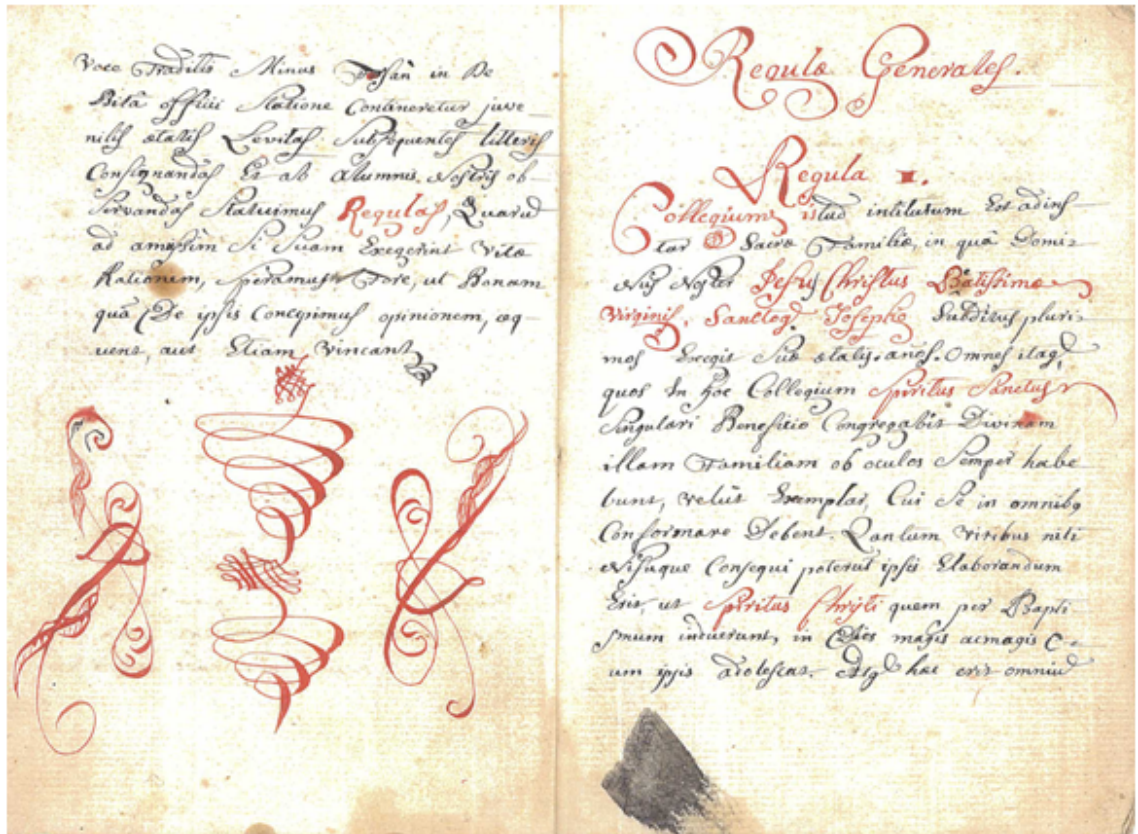 Voce Traditis Minus Forsan in De
Bita officii Statione Contineretur juve
nilis ætatis Levitas Subsequentes litteris
Consignandas Et ab Alumnis Nostris ob-
Servandas Statuimus Regulas, Quarū
ad amussim Si Suam Exegerint Vitæ
Rationem, speramus Fore, ut Bonam
quā De ipsis Concepimus opinionem, æq-
uent, aut Etiam Vincant
Regulæ Generales.
Regula I.
Collegium istud institutum Est ad ins-
tar Sacræ Familiæ, in quâ Domi-
nus Noster Jesus Christus Beatissimæ
Virginis, Sanctoq Josepho Subditus pluri-
mos Exegit Suæ ætatis años. Omnes itaq
quos In hoc Collegium Spiritus Sanctus
Singulari Beneficio Congregabit Divinam
illam Familiam ob oculos Semper habe
bunt, velut Exemplar, Cui Se in omnibq
Conformare Debent. Qantum viribus niti
Nisuque Consequi poterut ipsis Elaborandum
Erit, ut Spiritus Christi quem per Bapti
smum induerunt, in Dies magis acmagis C-
um ipsis adolescat. Atq hæc erit omniū